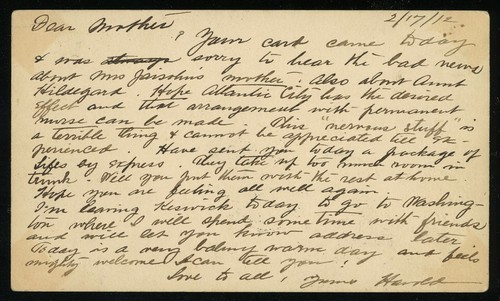 2/17/12.
Dear Mother
Your card came today
& was always sorry to hear the bad news
about Mrs mother. Also about Aunt
Hildegard. Hope Atlantic City has the desired
effect and that arrangement with permanent
nurse can be made. This "nervous stuff" is
a terrible thing & cannot be appreciated till ex-
perienced. Have sent you today a package of
by express. They take up too much room in
trunk. Will you put them with the rest at home.
Hope you are feeling all well again.
I'm leaving Keswick today to go to Washing-
ton where I will spend some time with friends
and will let you know address later.
Today is a very balmy warm day and feels
mighty welcome I can tell you!
Love to all, Yours Harold